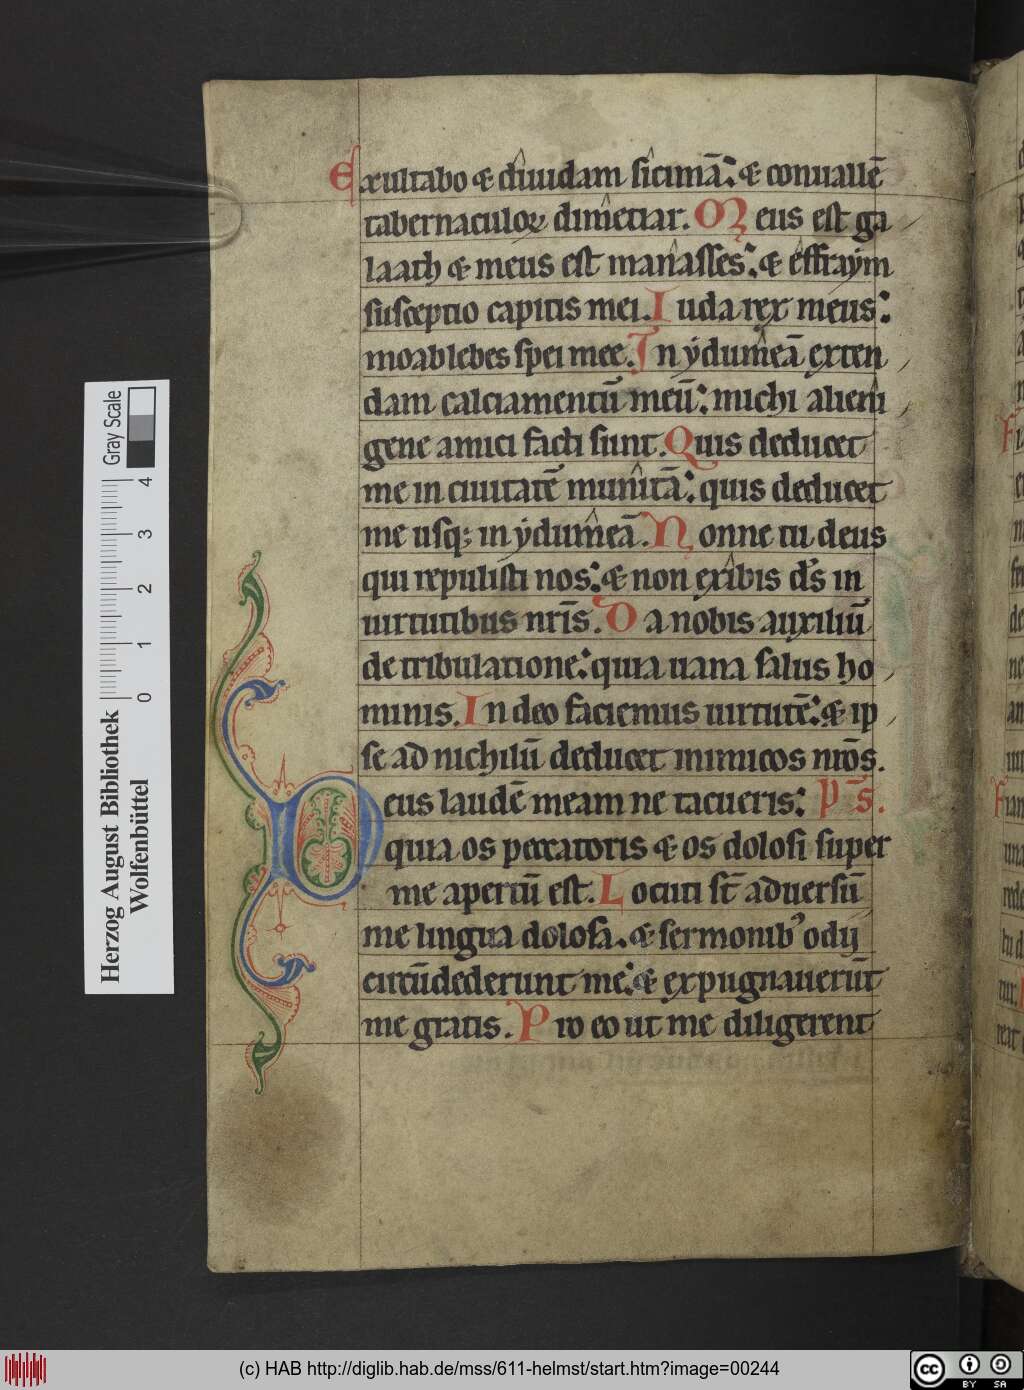 Exultabo & diuidam sicimā: & conuallē
tabernaculoꝝ dimetiar. Meus est ga
laath & meus est manasses: & effraym
susceptio capitis mei. Iuda rex meus:
moab lebes spei mee. In ẏdumeā exten
dam calciamentū meū: michi alieni
gene amici facti sunt. Quis deducet
me in ciuitatē munitā: quis deducet
me usq; in ẏdumeā. Nonne tu deus
qui repulisti nos: & non exibis ds̄ in
uirtutibus nr̄is. Da nobis auxiliū
de tribulatione: quia uana salus ho
minis. In deo faciemus uirtutē: & ip
se ad nichilū deducet inimicos nrōs.
Deus laudē meam ne tacueris: p̄s.
quia os peccatoris & os dolosi super
me apertū est. Locuti st̄ aduersū
me lingua dolosa. & sermonibꝰ odij
circūdederunt me: & expugnauerūt
me gratis. Pro eo ut me diligerent
Herzog August Bibliothek
Wolfenbüttel
Gray Scale
0 1 2 3 4
(c) HAB http://diglib.hab.de/mss/611-helmst/start.htm?image=00244
cc BY SA